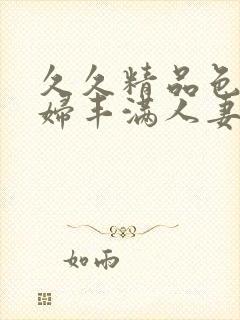 久久精品色
婦丰满人妻
如雨